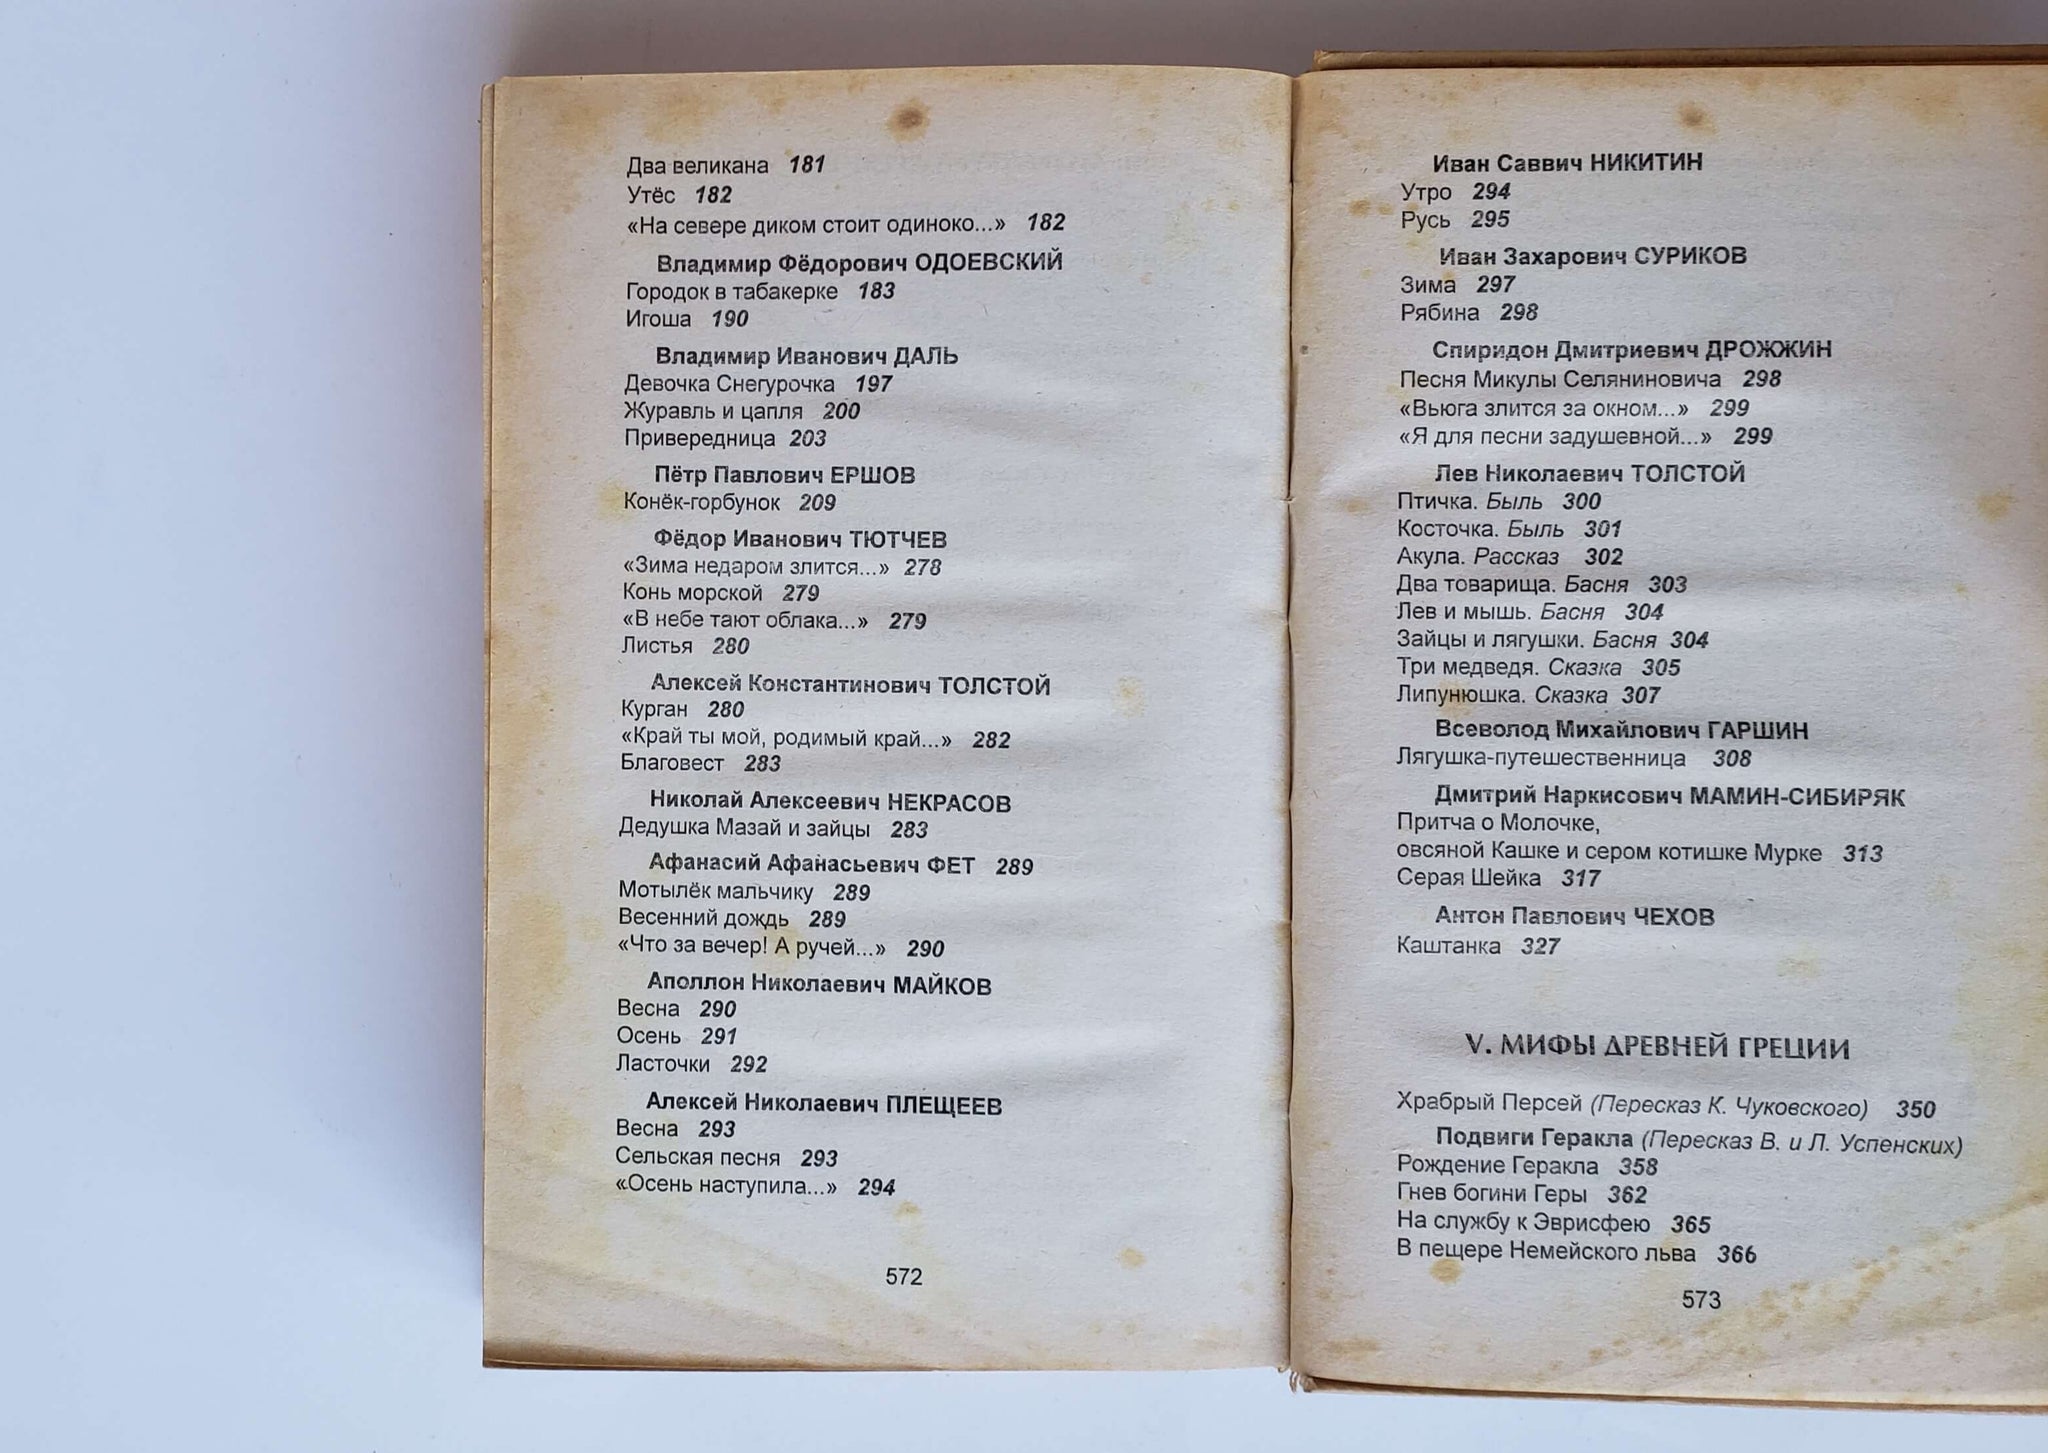 Два великана 181
Утёс 182
«На севере диком стоит одиноко...» 182
Владимир Фёдорович ОДОЕВСКИЙ
Городок в табакерке 183
Игоша 190
Владимир Иванович ДАЛЬ
Девочка Снегурочка 197
Журавль и цапля 200
Привередница 203
Пётр Павлович ЕРШОВ
Конёк-горбунок 209
Фёдор Иванович ТЮТЧЕВ
«Зима недаром злится...» 278
Конь морской 279
«В небе тают облака...» 279
Листья 280
Алексей Константинович ТОЛСТОЙ
Курган 280
«Край ты мой, родимый край...» 282
Благовест 283
Николай Алексеевич НЕКРАСОВ
Дедушка Мазай и зайцы 283
Афанасий Афанасьевич ФЕТ 289
Мотылёк мальчику 289
Весенний дождь 289
«Что за вечер! А ручей...» 290
Аполлон Николаевич МАЙКОВ
Весна 290
Осень 291
Ласточки 292
Алексей Николаевич ПЛЕЩЕЕВ
Весна 293
Сельская песня 293
«Осень наступила...» 294
572
Иван Саввич НИКИТИН
Утро 294
Русь 295
Иван Захарович СУРИКОВ
Зима 297
Рябина 298
Спиридон Дмитриевич ДРОЖЖИН
Песня Микулы Селяниновича 298
«Вьюга злится за окном...» 299
«Я для песни задушевной...» 299
Лев Николаевич ТОЛСТОЙ
Птичка. Быль 300
Косточка. Быль 301
Акула. Рассказ 302
Два товарища. Басня 303
Лев и мышь. Басня 304
Зайцы и лягушки. Басня 304
Три медведя. Сказка 305
Липунюшка. Сказка 307
Всеволод Михайлович ГАРШИН
Лягушка-путешественница 308
Дмитрий Наркисович МАМИН-СИБИРЯК
Притча о Молочке,
овсяной Кашке и сером котишке Мурке 313
Серая Шейка 317
Антон Павлович ЧЕХОВ
Каштанка 327
V. МИФЫ ДРЕВНЕЙ ГРЕЦИИ
Храбрый Персей (Пересказ К. Чуковского) 350
Подвиги Геракла (Пересказ В. и Л. Успенских)
Рождение Геракла 358
Гнев богини Геры 362
На службу к Эврисфею 365
В пещере Немейского льва 366
573